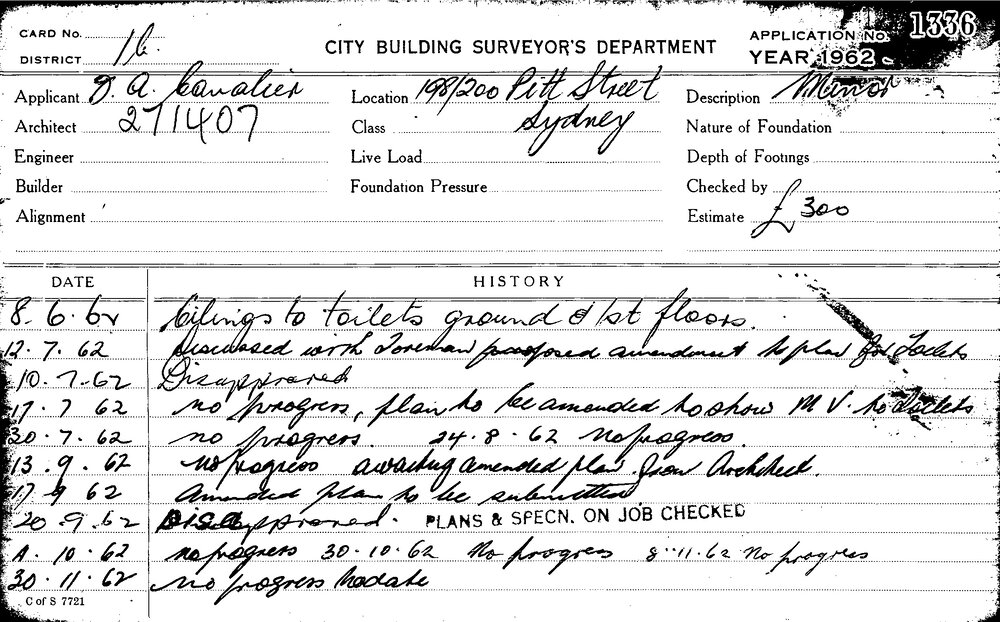 CARD No.
DISTRICT 16.
CITY BUILDING SURVEYOR'S DEPARTMENT
APPLICATION No. 1336
YEAR 1962
Applicant G. A. Cavalier
Location 198/200 Pitt Street Sydney
Description Minor
Architect 271407
Class
Nature of Foundation
Engineer
Live Load
Depth of Footings
Builder
Foundation Pressure
Checked by
Alignment
Estimate £300
DATE HISTORY
8. 6. 62 Ceilings to toilets ground & 1st floors.
12. 7. 62 Discussed with Foreman proposed amendment to plan for Toilets
10. 7. 62 Disapproved
17. 7 62 no progress, plan to be amended to show M V. to Toilets
30. 7. 62 no progress. 24. 8. 62 No progress.
13. 9. 62 No progress awaiting amended plan from Architect.
17 9 62 Amended plan to be submitted
20. 9. 62 Disapproved. PLANS & SPECN. ON JOB CHECKED
10. 62 no progress 30. 10. 62 No progress 8. 11. 62 No progress
30. 11. 62 No progress to date
C of S 7721